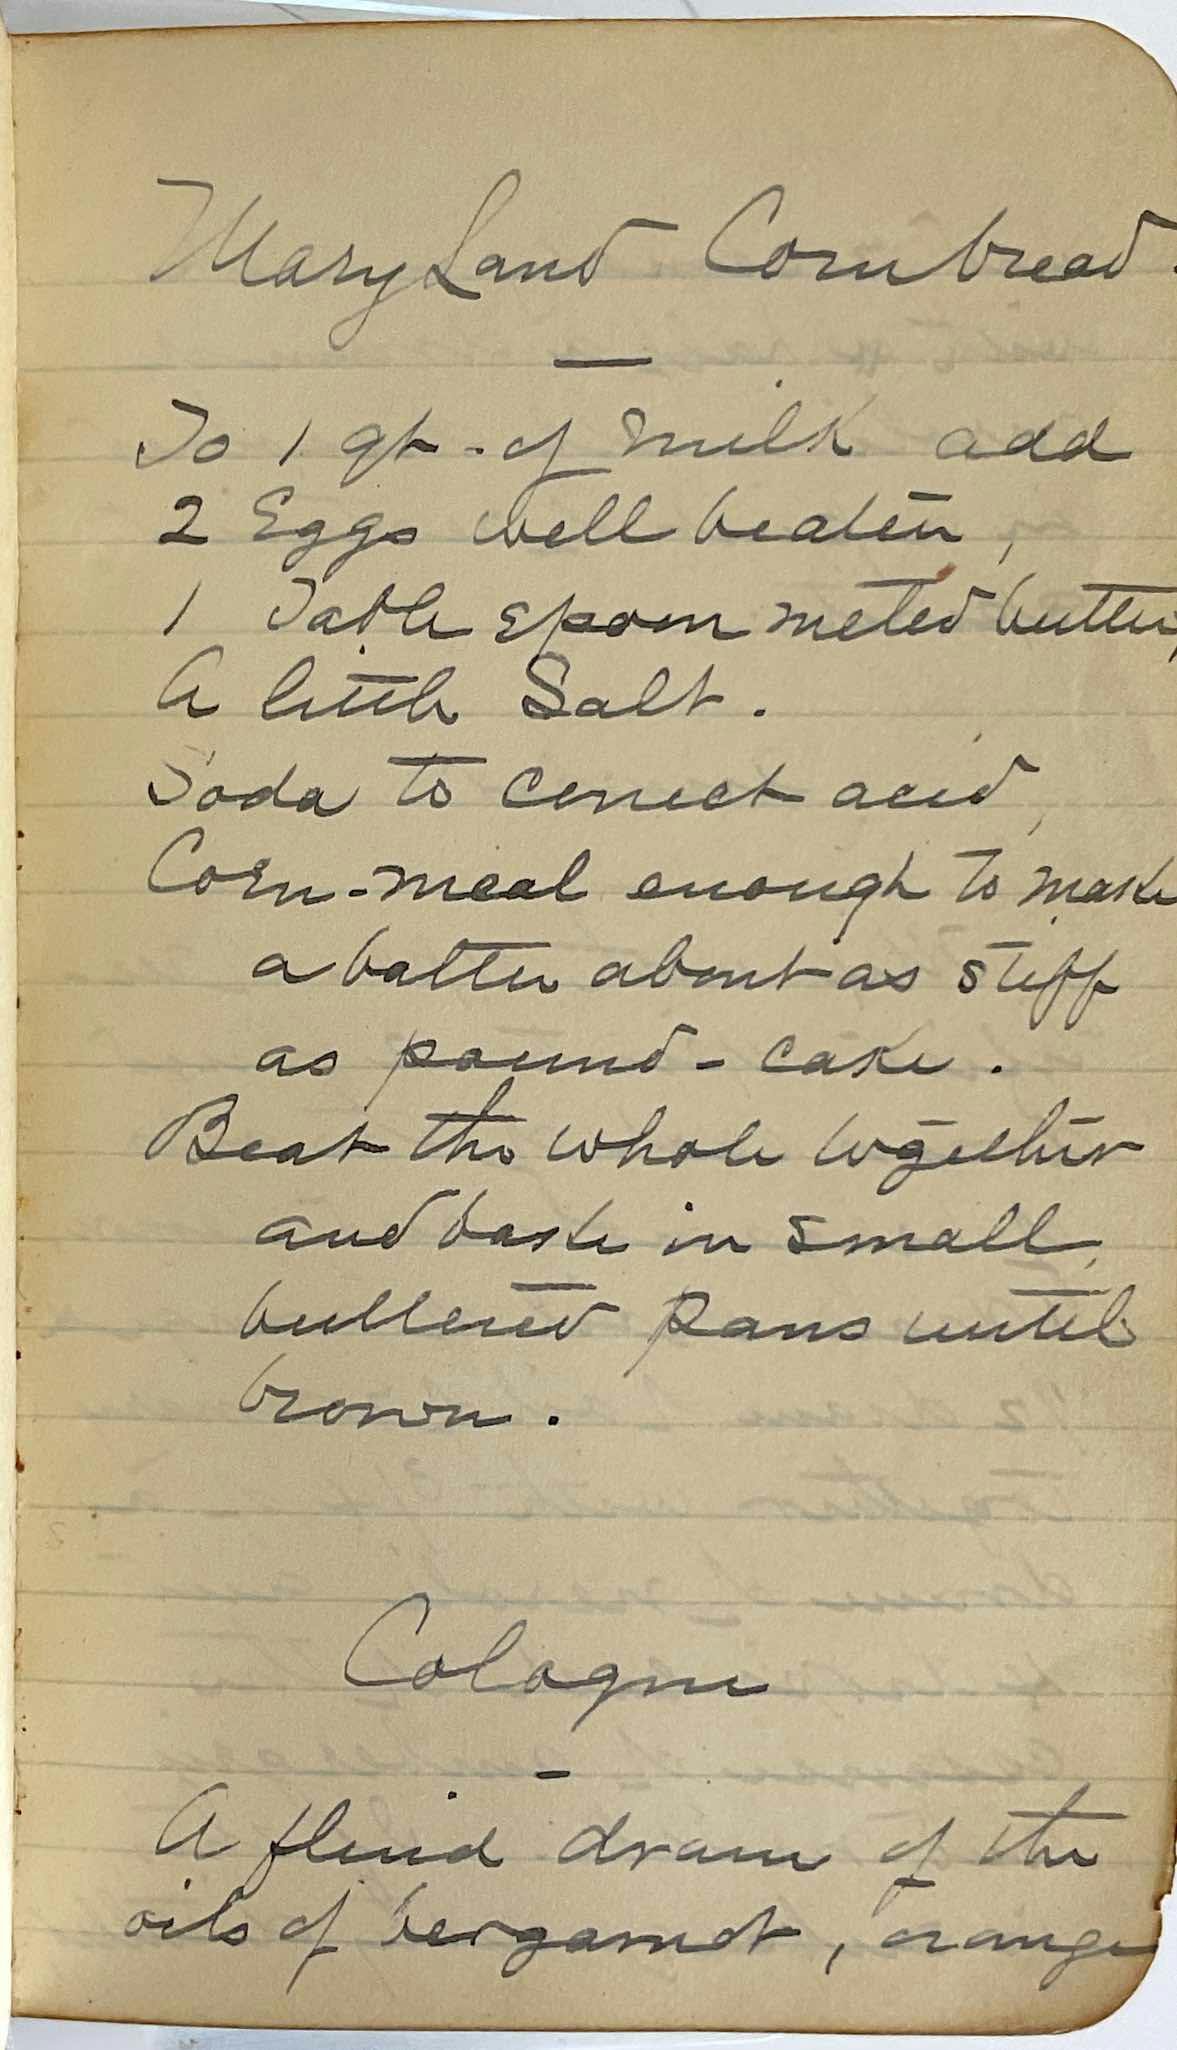 MaryLand Cornbread.
—
To 1 qt. of milk add
2 Eggs well beaten,
1 Table spoon melted butter,
A little Salt.
Soda to correct acid,
Corn-meal enough to make
a batter about as stiff
as pound-cake.
Beat the whole together
and bake in small,
buttered Pans until
brown.
Cologne
—
A fluid dram of the
oils of bergamot, orange